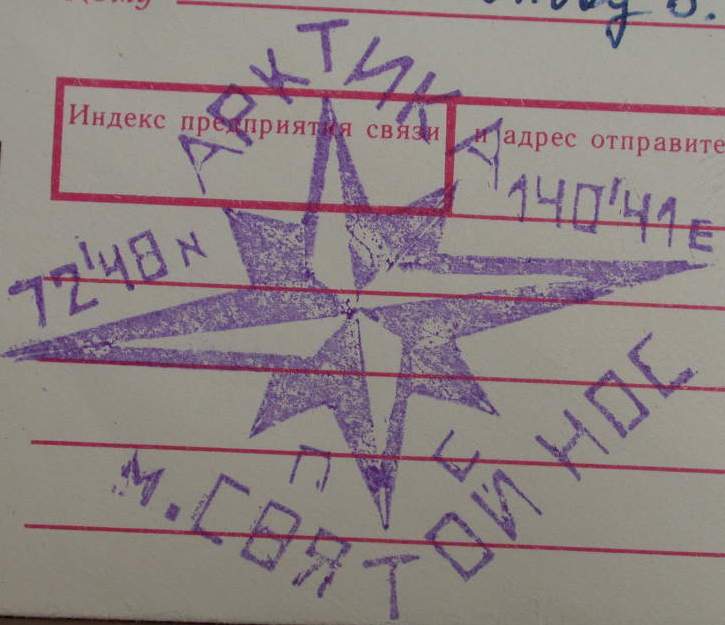 Кому
АРКТИКА
Индекс предприятия связи и адрес отправите
140'41 E
72'48 N
П Е
М. СВЯТОЙ НОС